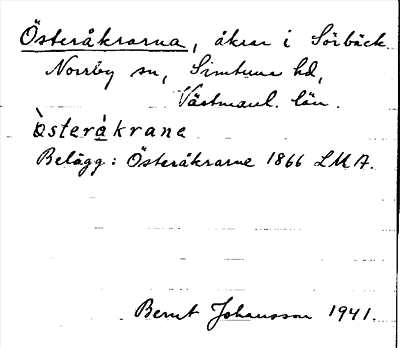 Österåkrarna, åkrar i Sörbäck
Norrby sn, Simtuna hd,
Västmanl. län.
ò̈steràkrane
Belägg: Österåkrarne 1866 LMA.
Bernt Johansson 1941.